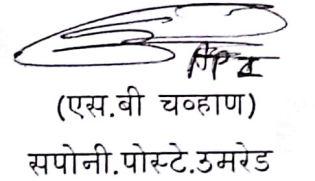 API
(एस.बी चव्हाण)
सपोनी.पोस्टे.उमरेड